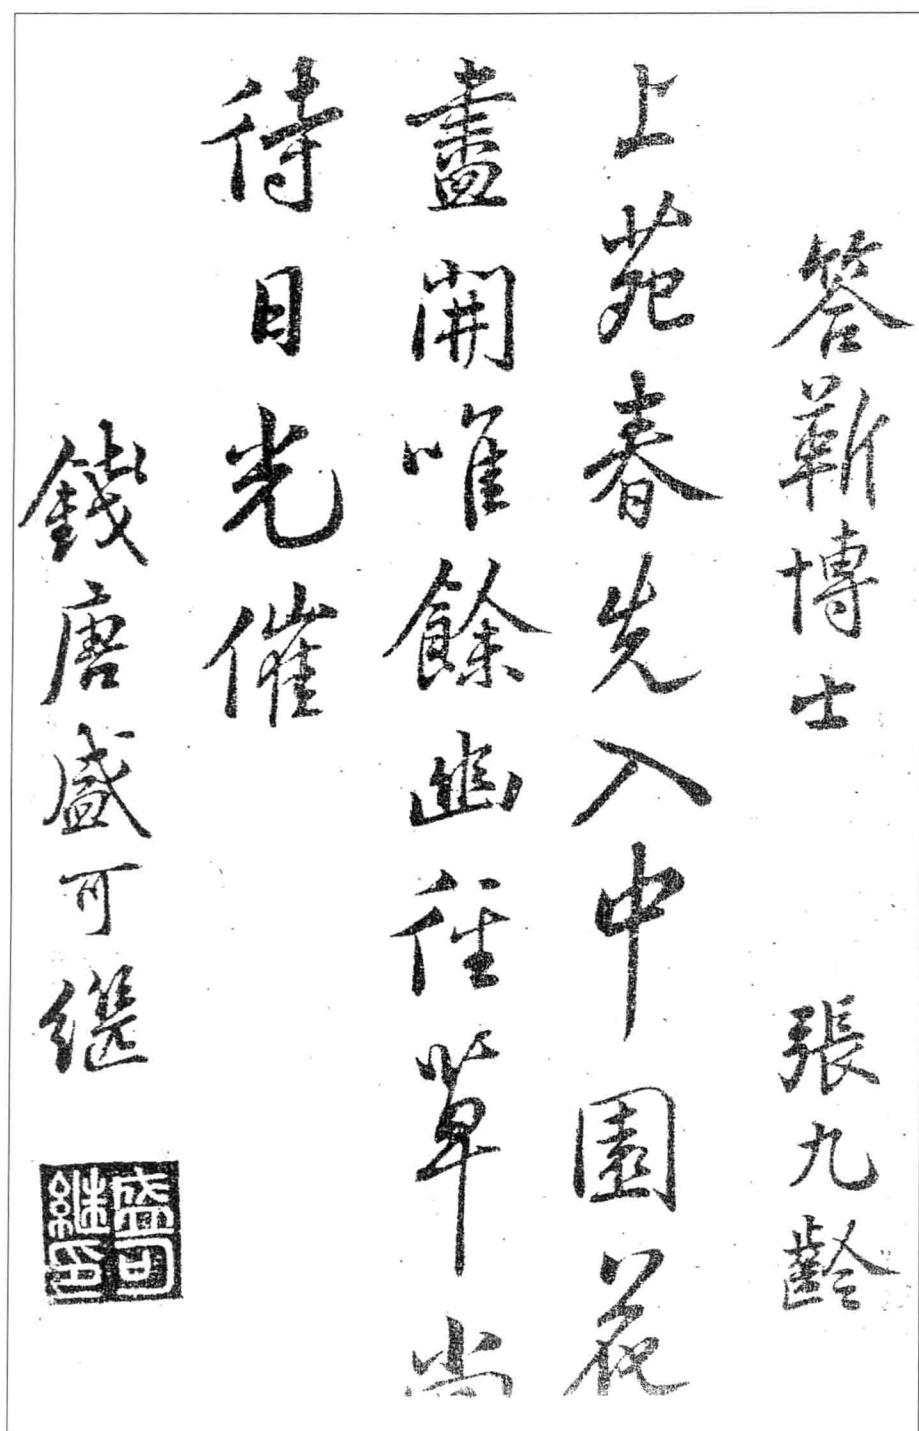 答靳博士　張九齡
上苑春先入中園花
盡開唯餘幽徑草尚
待日光催
錢唐盛可繼
盛可
繼印